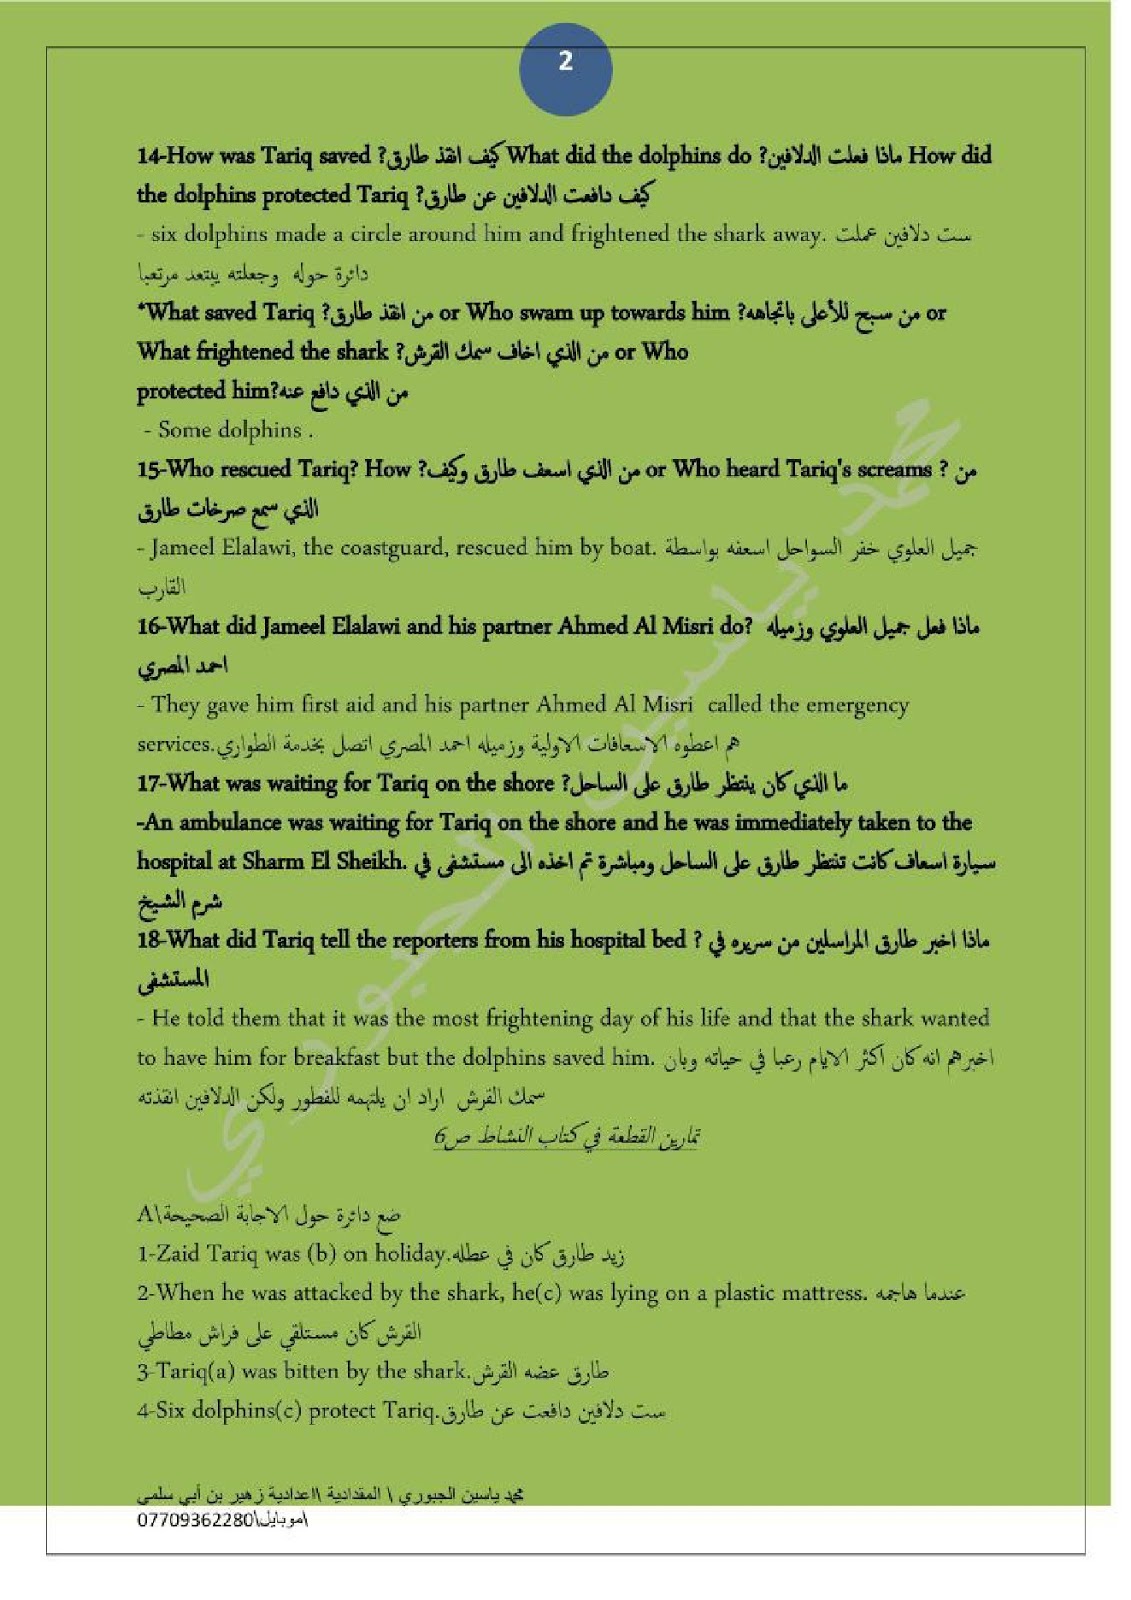 2
14-How was Tariq saved ?كيف انقذ طارق What did the dolphins do ?ماذا فعلت الدلافين How did
the dolphins protected Tariq ?كيف دافعت الدلافين عن طارق
- six dolphins made a circle around him and frightened the shark away. ست دلافين عملت
دائرة حوله وجعلته يبتعد مرتعبا
*What saved Tariq ?من انقذ طارق or Who swam up towards him ?من سبح للأعلى باتجاهه or
What frightened the shark ?من الذي اخاف سمك القرش or Who
protected him?من الذي دافع عنه
- Some dolphins .
15-Who rescued Tariq? How ?من الذي اسعف طارق وكيف or Who heard Tariq's screams ? من
الذي سمع صرخات طارق
- Jameel Elalawi, the coastguard, rescued him by boat. جميل العلوي خفر السواحل اسعفه بواسطة
القارب
16-What did Jameel Elalawi and his partner Ahmed Al Misri do? ماذا فعل جميل العلوي وزميله
احمد المصري
- They gave him first aid and his partner Ahmed Al Misri called the emergency
services.هم اعطوه الاسعافات الاولية وزميله احمد المصري اتصل بخدمة الطواري
17-What was waiting for Tariq on the shore ?ما الذي كان ينتظر طارق على الساحل
-An ambulance was waiting for Tariq on the shore and he was immediately taken to the
hospital at Sharm El Sheikh. سيارة اسعاف كانت تنتظر طارق على الساحل ومباشرة تم اخذه الى مستشفى في
شرم الشيخ
18-What did Tariq tell the reporters from his hospital bed ? ماذا اخبر طارق المراسلين من سريره في
المستشفى
- He told them that it was the most frightening day of his life and that the shark wanted
to have him for breakfast but the dolphins saved him. اخبرهم انه كان اكثر الايام رعبا في حياته وبان
سمك القرش اراد ان يلتهمه للفطور ولكن الدلافين انقذته
تمارين القطعة في كتاب النشاط ص6
A\ضع دائرة حول الاجابة الصحيحة
1-Zaid Tariq was (b) on holiday.زيد طارق كان في عطله
2-When he was attacked by the shark, he(c) was lying on a plastic mattress. عندما هاجمه
القرش كان مستلقي على فراش مطاطي
3-Tariq(a) was bitten by the shark.طارق عضه القرش
4-Six dolphins(c) protect Tariq.ست دلافين دافعت عن طارق
محمد ياسين الجبوري \ المقدادية \اعدادية زهير بن أبي سلمى
\موبايل\07709362280
محمد ياسين الجبوري